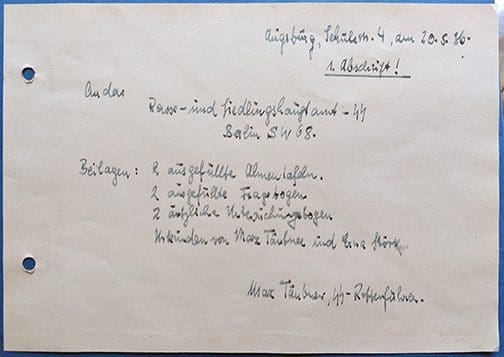 Augsburg, Schulstr. 4, am 20.5.36.
1. Abschrift!
An das
Rasse- und Siedlungshauptamt - SS
Berlin SW 68.
Beilagen: 2 ausgefüllte Ahnentafeln.
2 ausgefüllte Fragebogen
2 ärztliche Untersuchungsbogen
Urkunden von Max Täubner und Erna
Max Täubner, SS-Rottenführer.